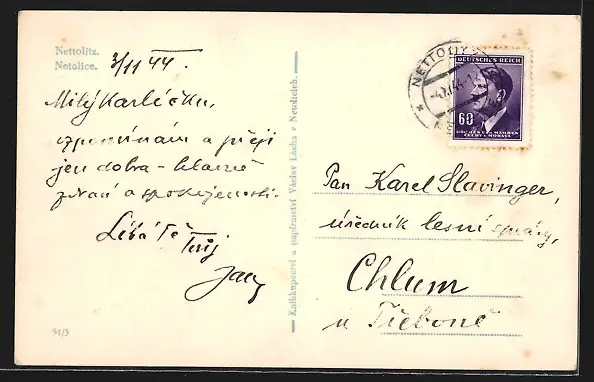 Nettolitz.
Netolice.
3/11 44.
Milý Karlíčku,
vzpomínám a přeji
jen dobra - hlavně
zdraví a spokojenosti.
Líbá Tě
Tvůj
Knihkupectví a papírnictví Václav Lácha v Netolicích.
54/3
NETTOLITZ
DEUTSCHES REICH
60
BÖHMEN u. MÄHREN
ČECHY a MORAVA
Pan Karel Slavinger,
úředník lesní správy,
Chlum
u Třeboně